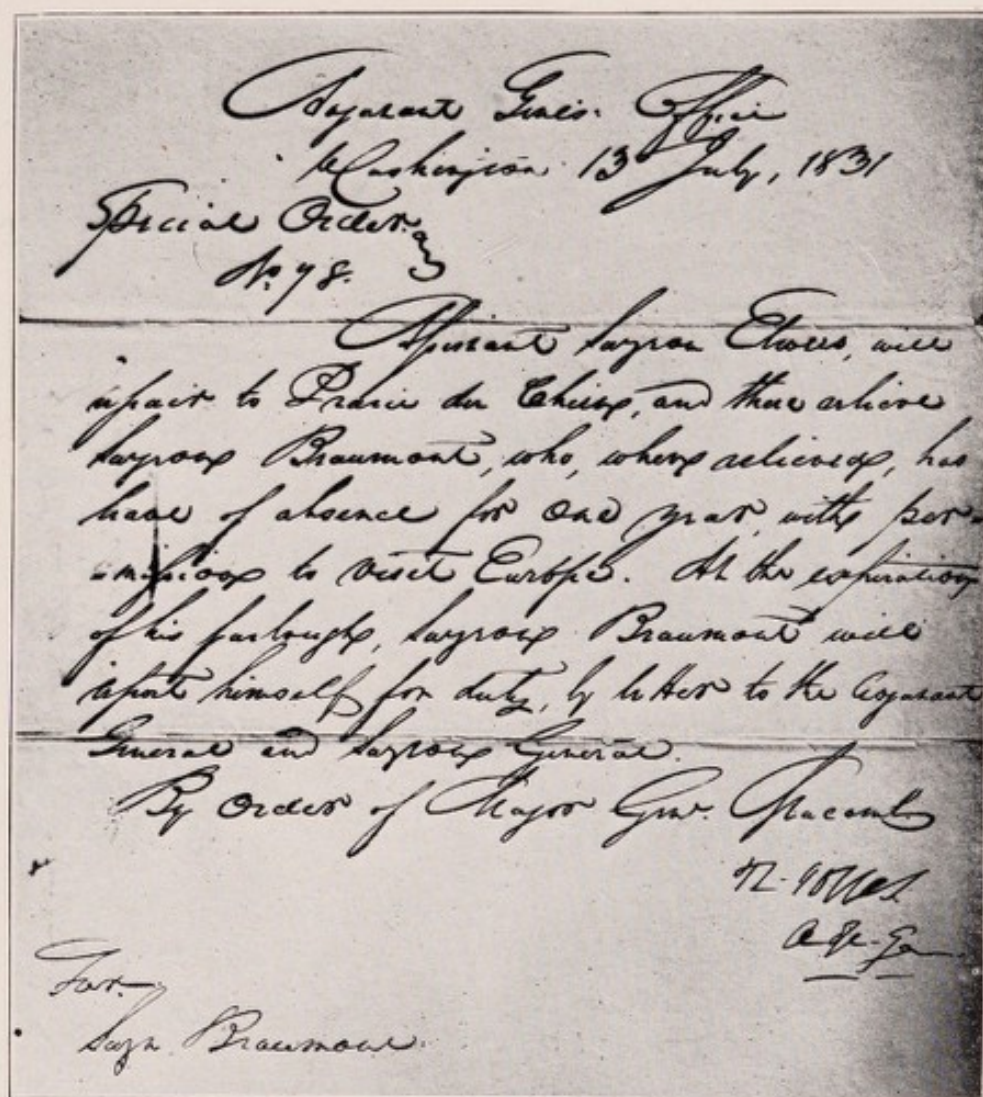 Adjutant Genl's. Office
Washington 13 July, 1831
Special Order
No. 78.
Assistant Surgeon Elwes, will
repair to Prairie du Chien, and there relieve
Surgeon Beaumont, who, when relieved, has
leave of absence for one year, with per-
-mission to visit Europe. At the expiration
of his furlough, Surgeon Beaumont will
report himself for duty, by letter to the Adjutant
General and Surgeon General.
By Order of Major Genl. Macomb
R. Jones
Adj. Ge
For
Surgn Beaumont.